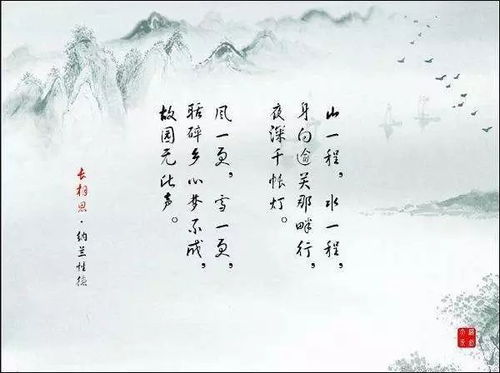 山一程，水一程，
身向逾关那畔行，
夜深千帐灯。
风一更，雪一更，
聒碎乡心梦不成，
故园无此声。
长相思·纳兰性德